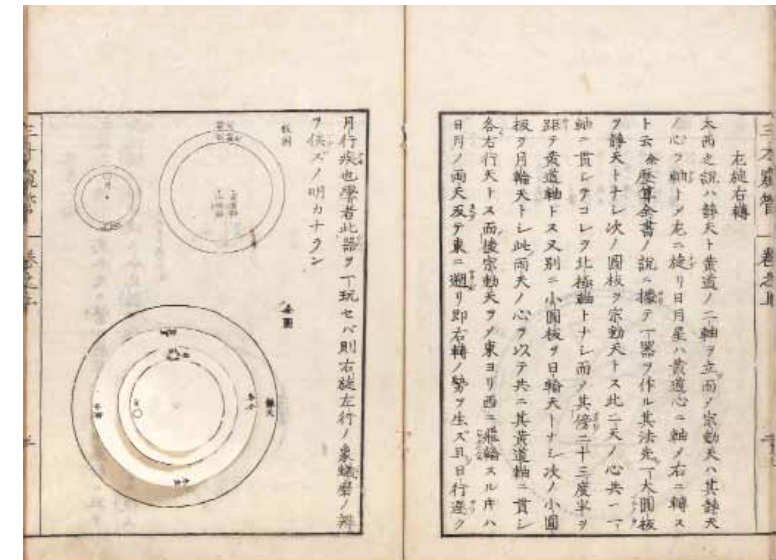 左旋右轉
太西之説ハ靜天ト黄道ノ二軸ヲ立而ノ宗動天ハ其靜天
ノ心ヲ軸トメ左ニ旋リ日月星ハ黄道心ニ軸メ右ニ轉ス
ト云余歴算全書ノ説ニ據テ一器ヲ作ル其法先一大圓板
ヲ靜天トナシ次ノ圓板ヲ宗動天トス此二天ノ心共ニ一
軸ニ貫シテコレヲ北極軸トナシ而メ其傍二十三度半ヲ
距テ黄道軸トス又別ニ小圓板ヲ日輪天トナシ次ノ小圓
板ヲ月輪天トシ此兩天ノ心ヲ以テ共ニ其黄道軸ニ貫シ
各右行天トス而後宗動天ヲメ東ヨリ西ニ飛輪スル片ハ
日月ノ兩天反テ東ニ遡リ即右轉ノ勢ヲ生ズ且日行遅ク
月行疾也學者此器ヲ一玩セバ則右旋左行ノ象蟻磨ノ辨
ヲ俟ズノ明カナラン
板圖
全圖
靜天
三才窺管
卷之上